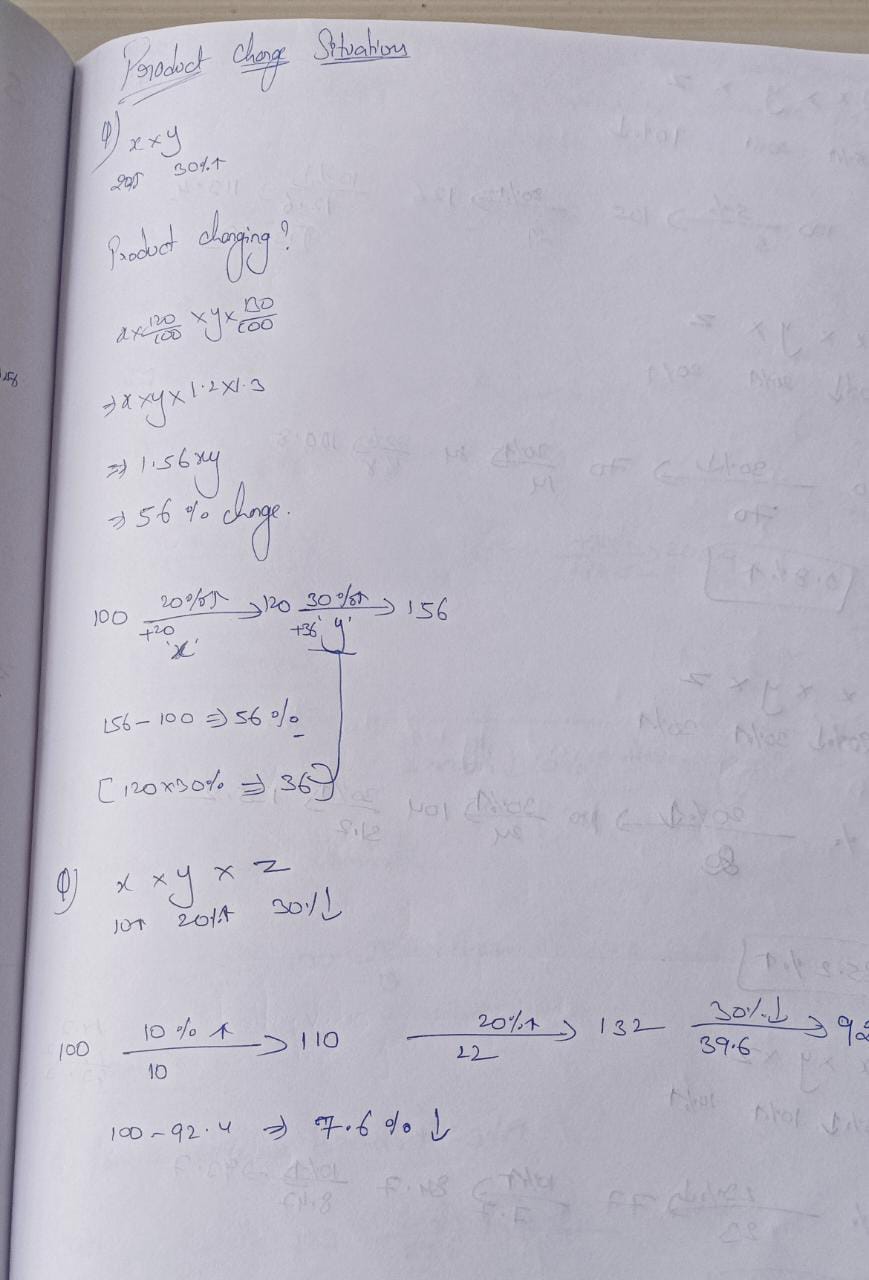 Product change Situations
Q) x × y
20↑ 30%↑
Product changing?
x × 120/100 × y × 130/100
⇒ x × y × 1.2 × 1.3
⇒ 1.56xy
⇒ 56 % change.
100 —20%↑ / +20 'x'→ 120 —30%↑ / +36 'y'→ 156
156 - 100 ⇒ 56 %
[120 × 30% ⇒ 36]
Q) x × y × z
10↑ 20%↑ 30%↓
100 —10 % ↑ / 10→ 110 —20%↑ / 22→ 132 —30%↓ / 39.6→ 92
100 - 92.4 ⇒ 7.6 % ↓